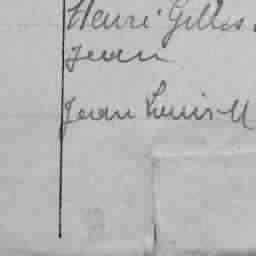 Henri Gilles
Jean
Jean Louis M